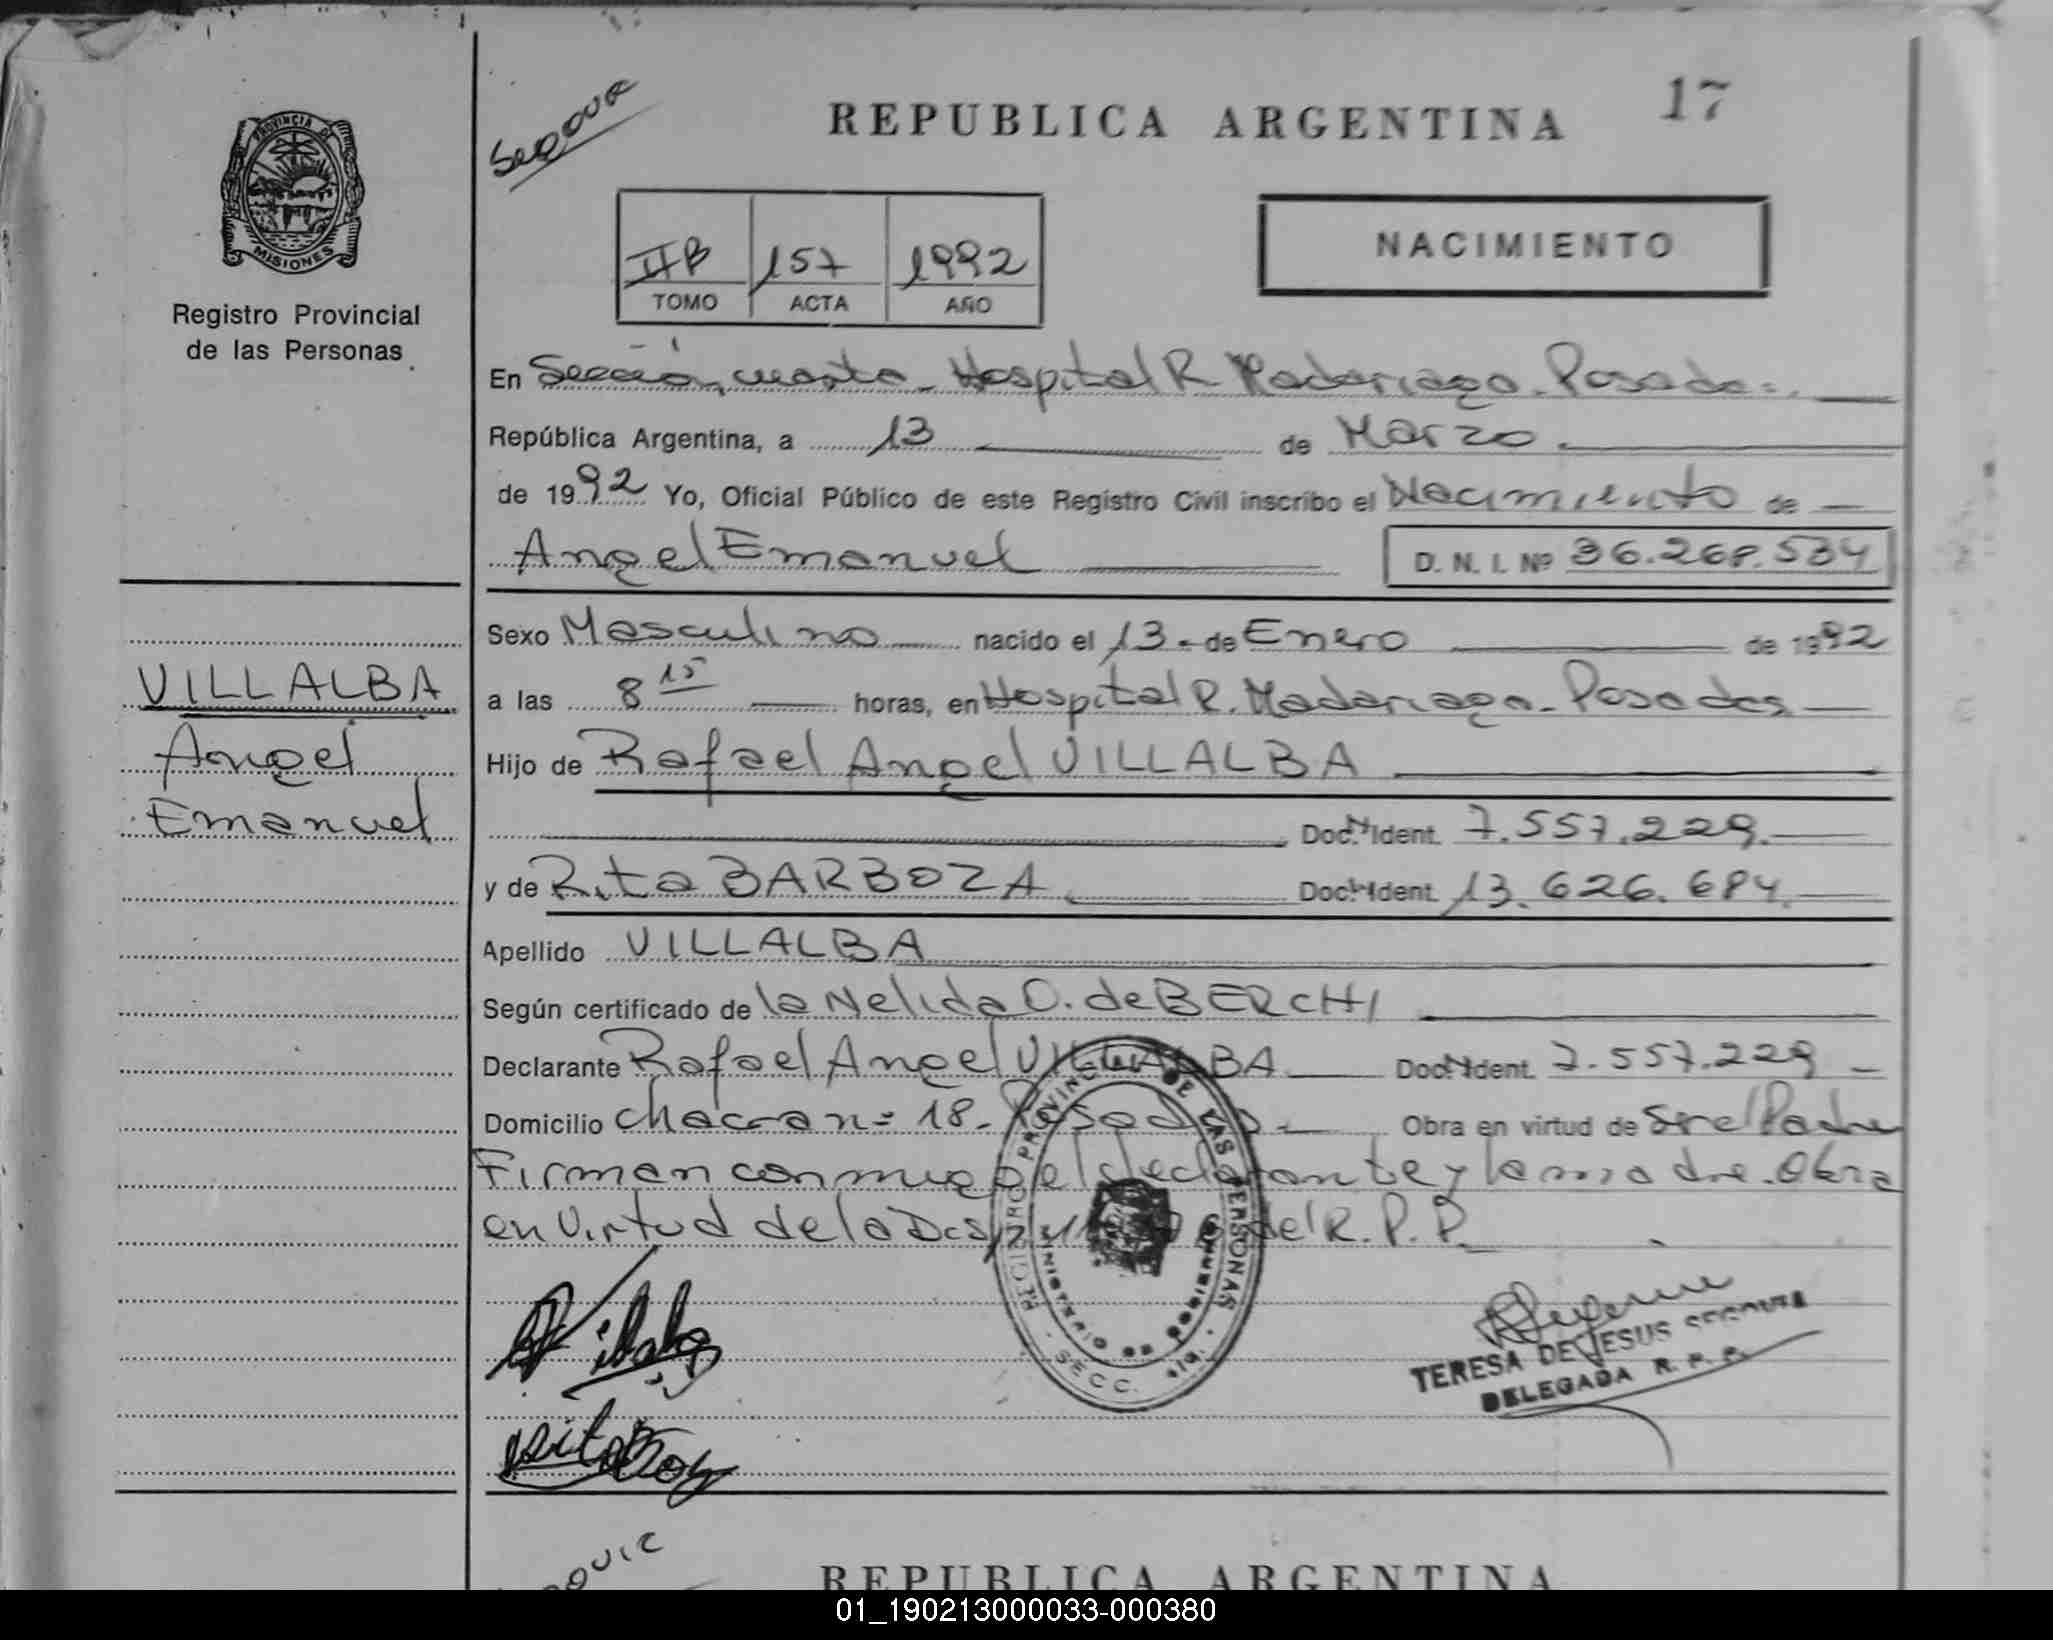 17
REPUBLICA ARGENTINA
PROVINCIA DE
MISIONES
Registro Provincial
de las Personas
NACIMIENTO
IIB 157 1992
TOMO ACTA AÑO
En Sección cuarta - Hospital R. Madariaga - Posadas.
República Argentina, a 13 de Marzo
de 1992 Yo, Oficial Público de este Registro Civil inscribo el Nacimiento de
Angel Emanuel D. N. I. Nº 36.268.534
Sexo Masculino nacido el 13 - de Enero de 1992
VILLALBA
Angel
Emanuel
a las 8 15 horas, en Hospital R. Madariaga - Posadas
Hijo de Rafael Angel VILLALBA
Doc. Ident. 7.557.229.
y de Rita BARBOZA Doc. Ident. 13.626.684.
Apellido VILLALBA
Según certificado de la Nelida O. de BERCHI
Declarante Rafael Angel VILLALBA Doc. Ident. 7.557.229
Domicilio Chacra n= 18 - Posadas - Obra en virtud de Ser el Padre
Firman conmigo el declarante y la madre. Obra
en Virtud de la Disp del R. P. P.
REGISTRO PROVINCIAL DE LAS PERSONAS
MINISTERIO DE GOBIERNO
SECC.
TERESA DE JESUS SEGOVIA
DELEGADA R. P. P.
REPUBLICA ARGENTINA
01_190213000033-000380